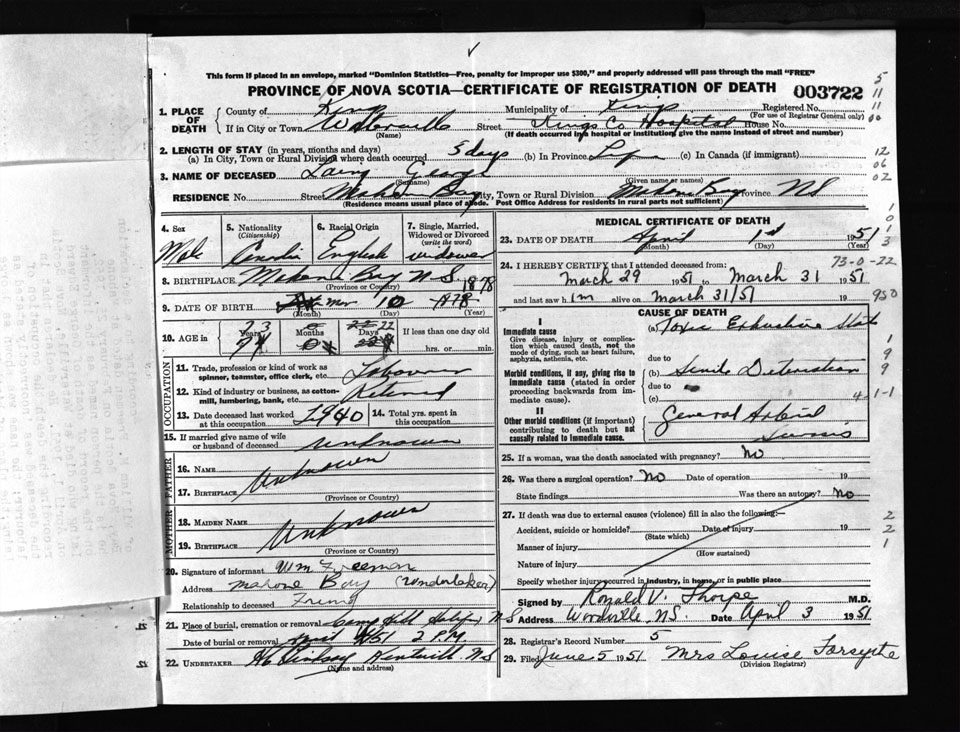 This form if placed in an envelope, marked "Dominion Statistics—Free, penalty for improper use $300," and properly addressed will pass through the mail "FREE"
PROVINCE OF NOVA SCOTIA—CERTIFICATE OF REGISTRATION OF DEATH 003722
1. PLACE OF DEATH County of Kings Municipality of Kings Registered No.
(For use of Registrar General only)
If in City or Town Waterville Street Kings Co Hospital House No.
(Name) (If death occurred in a hospital or institution, give the name instead of street and number)
2. LENGTH OF STAY (in years, months and days)
(a) In City, Town or Rural Division where death occurred 5 days (b) In Province Life (c) In Canada (if immigrant)
3. NAME OF DECEASED Laing George
(Surname) (Given name or names)
RESIDENCE No. Street Mahone Bay City, Town or Rural Division Mahone Bay Province NS
(Residence means usual place of abode. Post Office Address for residents in rural parts not sufficient)
4. Sex Male
5. Nationality (Citizenship) Canadian
6. Racial Origin English
7. Single, Married, Widowed or Divorced (write the word) widower
8. BIRTHPLACE Mahone Bay N S.
(Province or Country)
9. DATE OF BIRTH Mar 10 1878
(Month) (Day) (Year)
10. AGE in 73 Years Months Days 22 If less than one day old
hrs. or min.
OCCUPATION
11. Trade, profession or kind of work as spinner, teamster, office clerk, etc. Labourer
12. Kind of industry or business, as cotton-mill, lumbering, bank, etc. Retired
13. Date deceased last worked at this occupation 1940 14. Total yrs. spent in this occupation
15. If married give name of wife or husband of deceased Unknown
FATHER
16. NAME Unknown
17. BIRTHPLACE
(Province or Country)
MOTHER
18. MAIDEN NAME Unknown
19. BIRTHPLACE
(Province or Country)
20. Signature of informant Wm Freeman
Address Mahone Bay (Undertaker)
Relationship to deceased Friend
21. Place of burial, cremation or removal Camp Hill Halifax N S
Date of burial or removal April 51 2 P.M.
22. UNDERTAKER Lindsay Kentville N.S
(Name and address)
MEDICAL CERTIFICATE OF DEATH
23. DATE OF DEATH April 1st 1951
(Month) (Day) (Year)
73-0-22
24. I HEREBY CERTIFY that I attended deceased from:
March 29 1951 to March 31 1951
and last saw him alive on March 31/51 19
CAUSE OF DEATH
I
Immediate cause
Give disease, injury or complication which caused death, not the mode of dying, such as heart failure, asphyxia, asthenia, etc.
(a) Toxic Exhaustive State
due to
Morbid conditions, if any, giving rise to immediate cause (stated in order proceeding backwards from immediate cause).
(b) Senile Deterioration
due to
(c)
II
Other morbid conditions (if important) contributing to death but not causally related to immediate cause.
General Arterio
25. If a woman, was the death associated with pregnancy? No
26. Was there a surgical operation? No Date of operation 19
State findings Was there an autopsy? No
27. If death was due to external causes (violence) fill in also the following:—
Accident, suicide or homicide? Date of injury 19
(State which)
Manner of injury
(How sustained)
Nature of injury
Specify whether injury occurred in industry, in home, or in public place
Signed by Ronald V. Thorpe M.D.
Address Woodville, N.S. Date April 3 1951
28. Registrar's Record Number 5
29. Filed June 5 1951 Mrs Louise Forsythe
(Division Registrar)